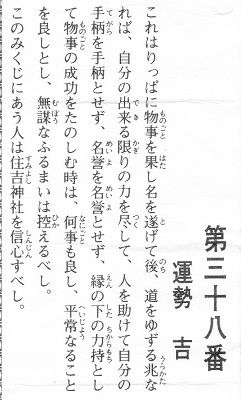 第三十八番
運勢　吉
これはりっぱに物事を果し名を遂げて後、道をゆずる兆な
れば、自分の出来る限りの力を尽して、人を助けて自分の
手柄を手柄とせず、名誉を名誉とせず、縁の下の力持とし
て物事の成功をたのしむ時は、何事も良し、平常なること
を良しとし、無謀なふるまいは控えるべし。
このみくじにあう人は住吉神社を信心すべし。